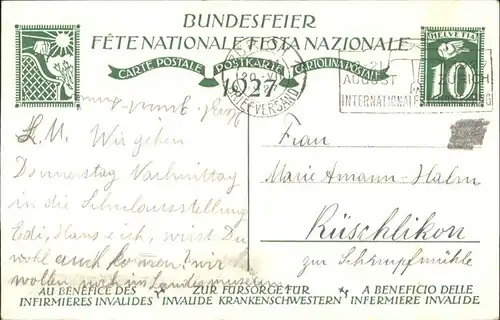 BUNDESFEIER
FÊTE NATIONALE FESTA NAZIONALE
CARTE POSTALE POSTKARTE CARTOLINA POSTALE
1927
BRIEFVERSAND
HELVETIA
10
21
AUGUST ZÜRICH
INTERNATIONALE
L. M. Wir gehen
Donnerstag Vachmittag
in die Schulausstellung
Edi, Hans & ich, wirst Du
wohl auch kommen? wir
wollen noch ins Landesmuseum.
Frau
Marie Amann-Halm
Rüschlikon
zur Schrupfmühle
AU BENEFICE DES ZUR FÜRSORGE FÜR A BENEFICIO DELLE
INFIRMIERES INVALIDES INVALIDE KRANKENSCHWESTERN INFERMIERE INVALIDE